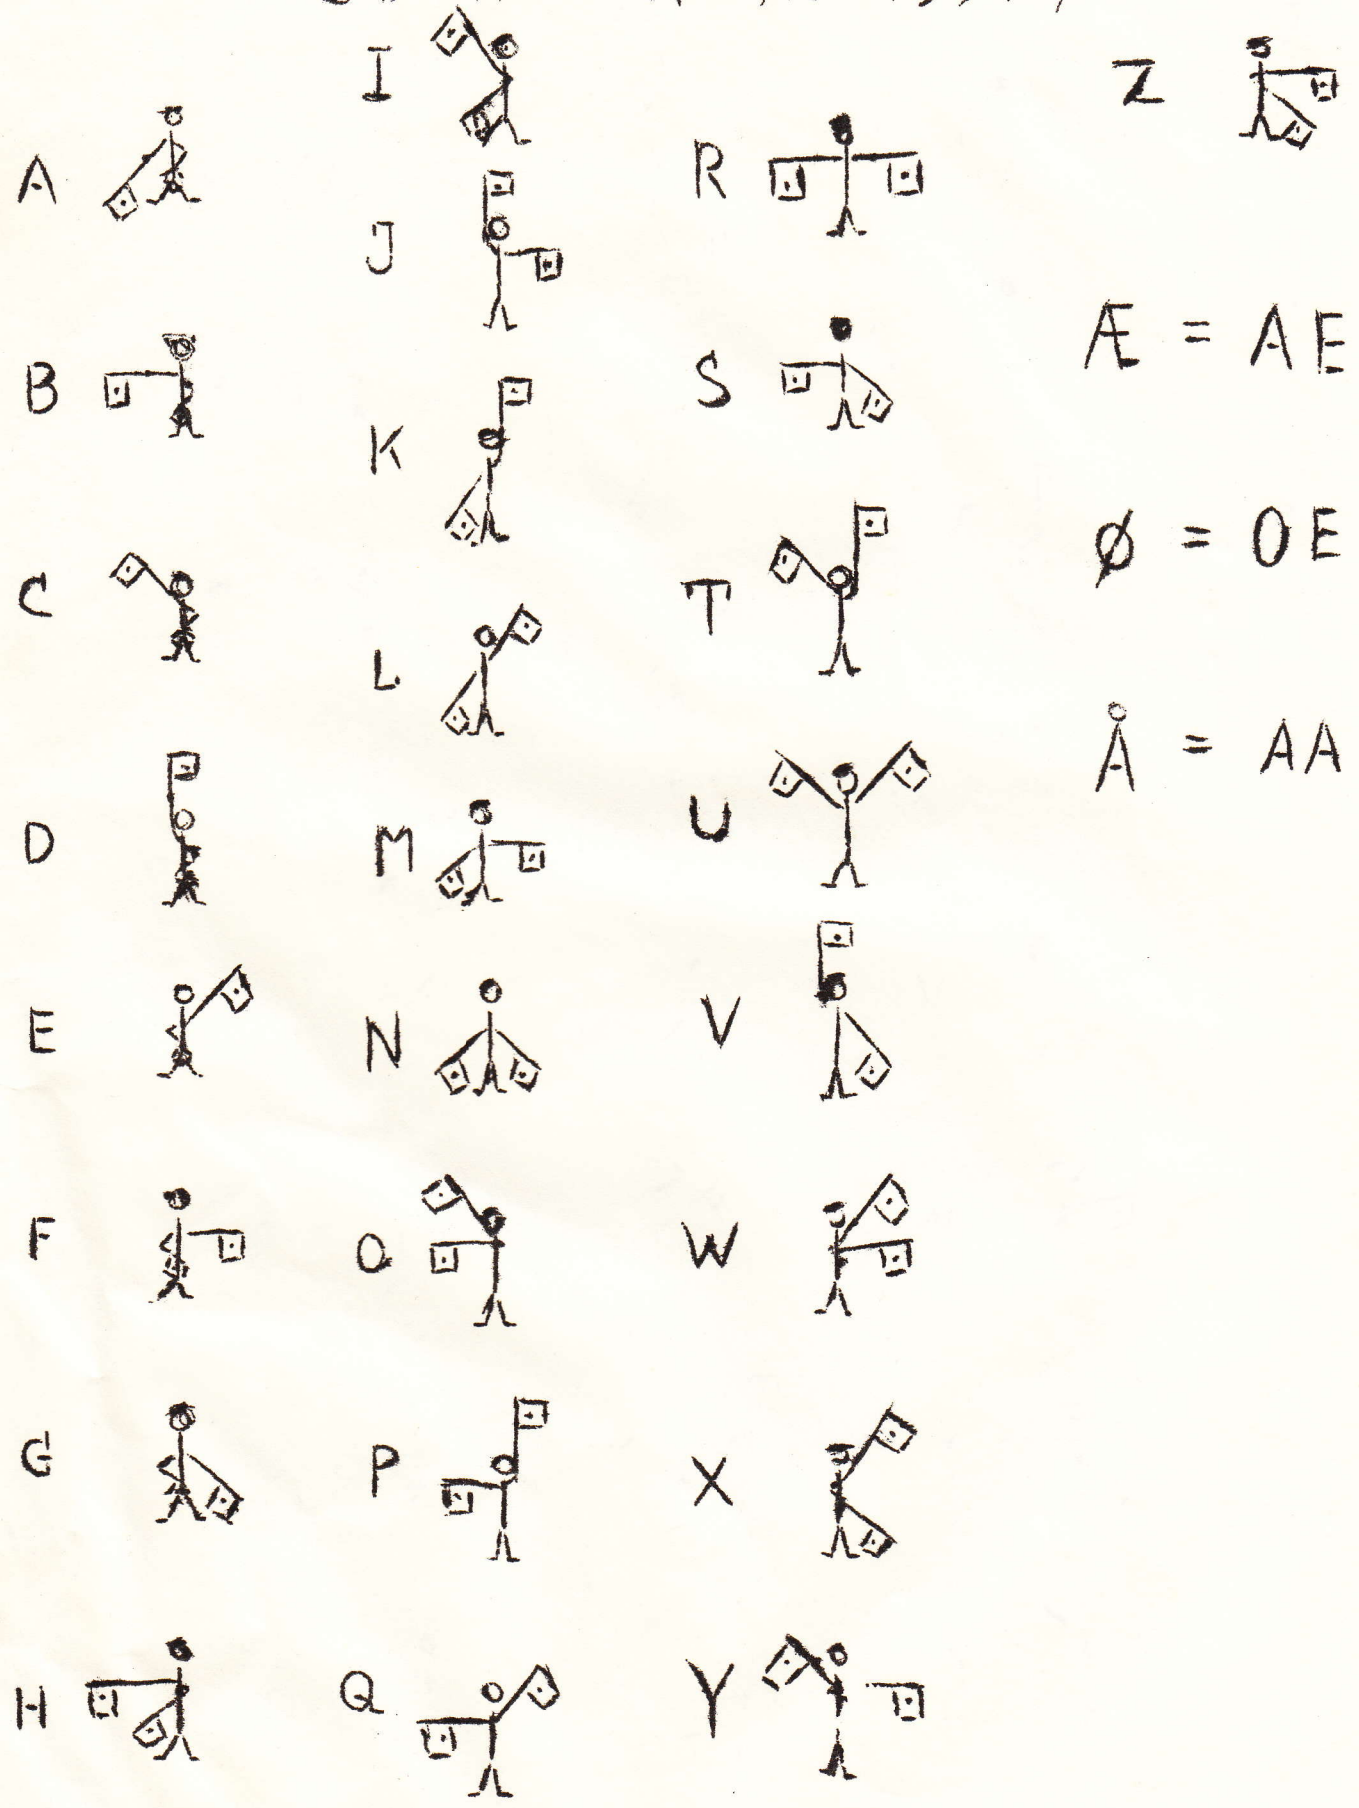 A
B
C
D
E
F
G
H
I
J
K
L
M
N
O
P
Q
R
S
T
U
V
W
X
Y
Z
Æ = AE
Ø = OE
Å = AA